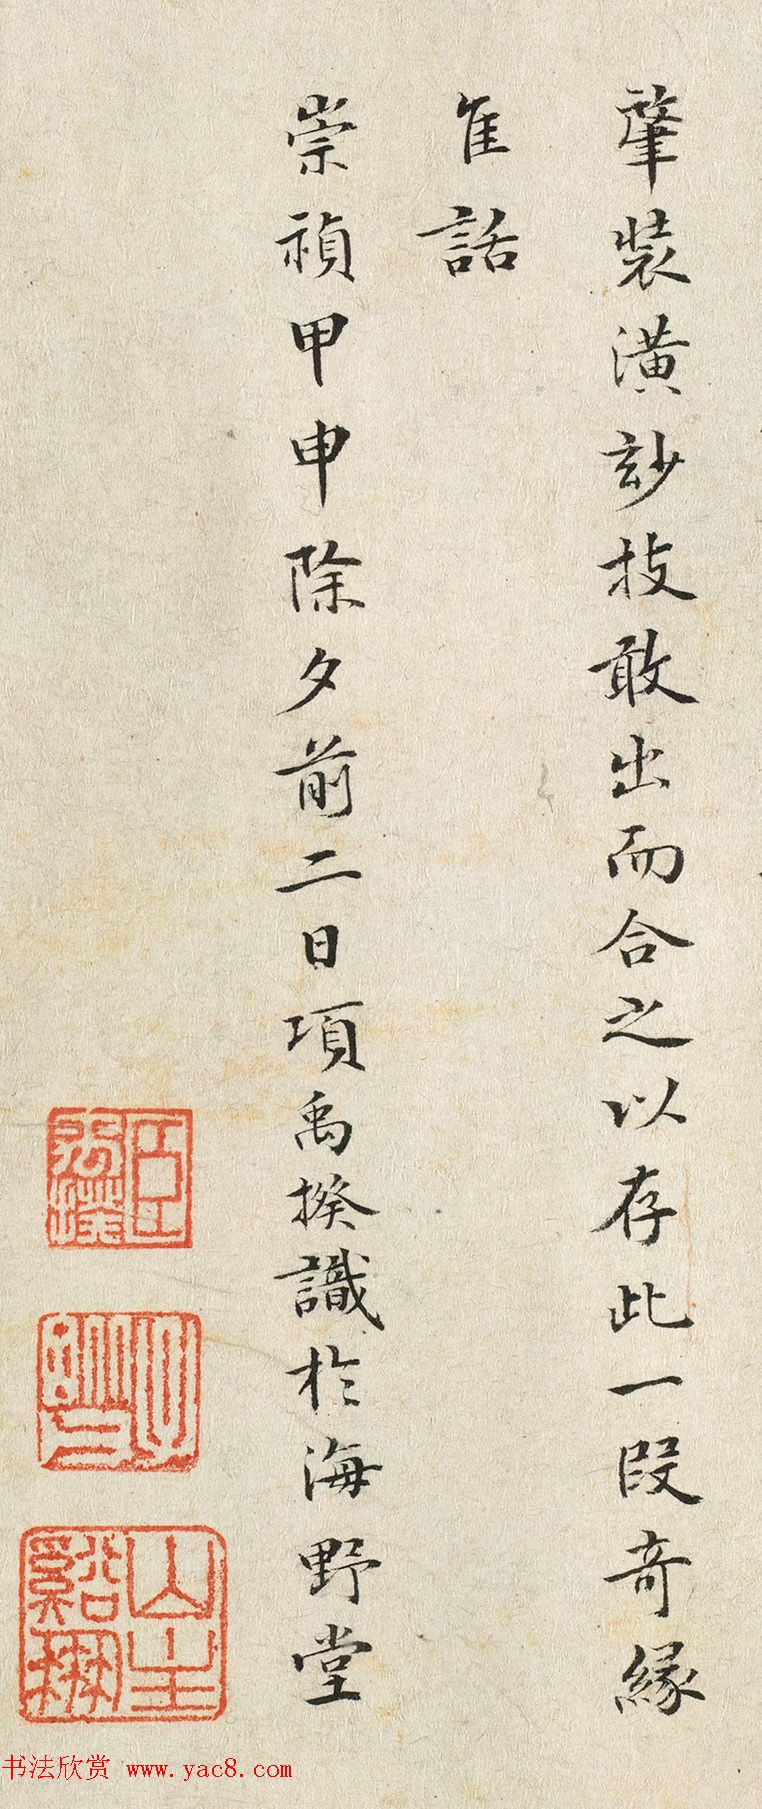 肇裝潢玅技敢出而合之以存此一段奇緣
佳話
崇禎甲申除夕前二日項禹揆識於海野堂
书法欣赏 www.yac8.com